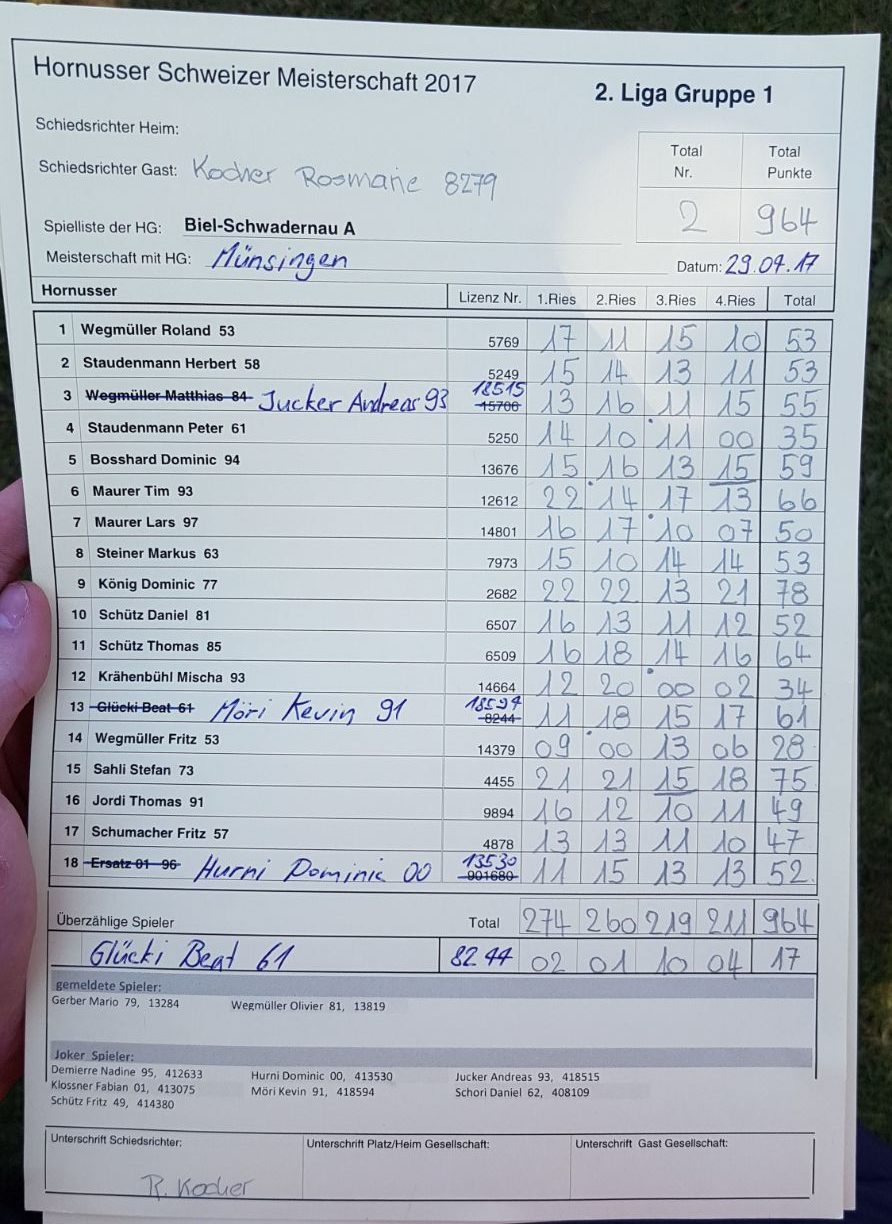 Hornusser Schweizer Meisterschaft 2017
2. Liga Gruppe 1
Schiedsrichter Heim:
Total Nr. Total Punkte
Schiedsrichter Gast: Kocher Rosmarie 8279
2 964
Spielliste der HG: Biel-Schwadernau A
Meisterschaft mit HG: Münsingen
Datum: 29.07.17
Hornusser Lizenz Nr. 1.Ries 2.Ries 3.Ries 4.Ries Total
1 Wegmüller Roland 53 5769 17 11 15 10 53
2 Staudenmann Herbert 58 5249 15 14 13 11 53
3 Wegmüller Matthias 84 Jucker Andreas 93 18515 15706 13 16 11 15 55
4 Staudenmann Peter 61 5250 14 10 11 00 35
5 Bosshard Dominic 94 13676 15 16 13 15 59
6 Maurer Tim 93 12612 22 14 17 13 66
7 Maurer Lars 97 14801 16 17 10 07 50
8 Steiner Markus 63 7973 15 10 14 14 53
9 König Dominic 77 2682 22 22 13 21 78
10 Schütz Daniel 81 6507 16 13 11 12 52
11 Schütz Thomas 85 6509 16 18 14 16 64
12 Krähenbühl Mischa 93 14664 12 20 00 02 34
13 Glücki Beat 61 Möri Kevin 91 18594 8244 11 18 15 17 61
14 Wegmüller Fritz 53 14379 09 00 13 06 28
15 Sahli Stefan 73 4455 21 21 15 18 75
16 Jordi Thomas 91 9894 16 12 10 11 49
17 Schumacher Fritz 57 4878 13 13 11 10 47
18 Ersatz 01 96 Hurni Dominic 00 13530 901680 11 15 13 13 52
Überzählige Spieler Total 274 260 219 211 964
Glücki Beat 61 8244 02 01 10 04 17
gemeldete Spieler:
Gerber Mario 79, 13284 Wegmüller Olivier 81, 13819
Joker Spieler:
Demierre Nadine 95, 412633 Hurni Dominic 00, 413530 Jucker Andreas 93, 418515
Klossner Fabian 01, 413075 Möri Kevin 91, 418594 Schori Daniel 62, 408109
Schütz Fritz 49, 414380
Unterschrift Schiedsrichter: Unterschrift Platz/Heim Gesellschaft: Unterschrift Gast Gesellschaft:
R. Kocher